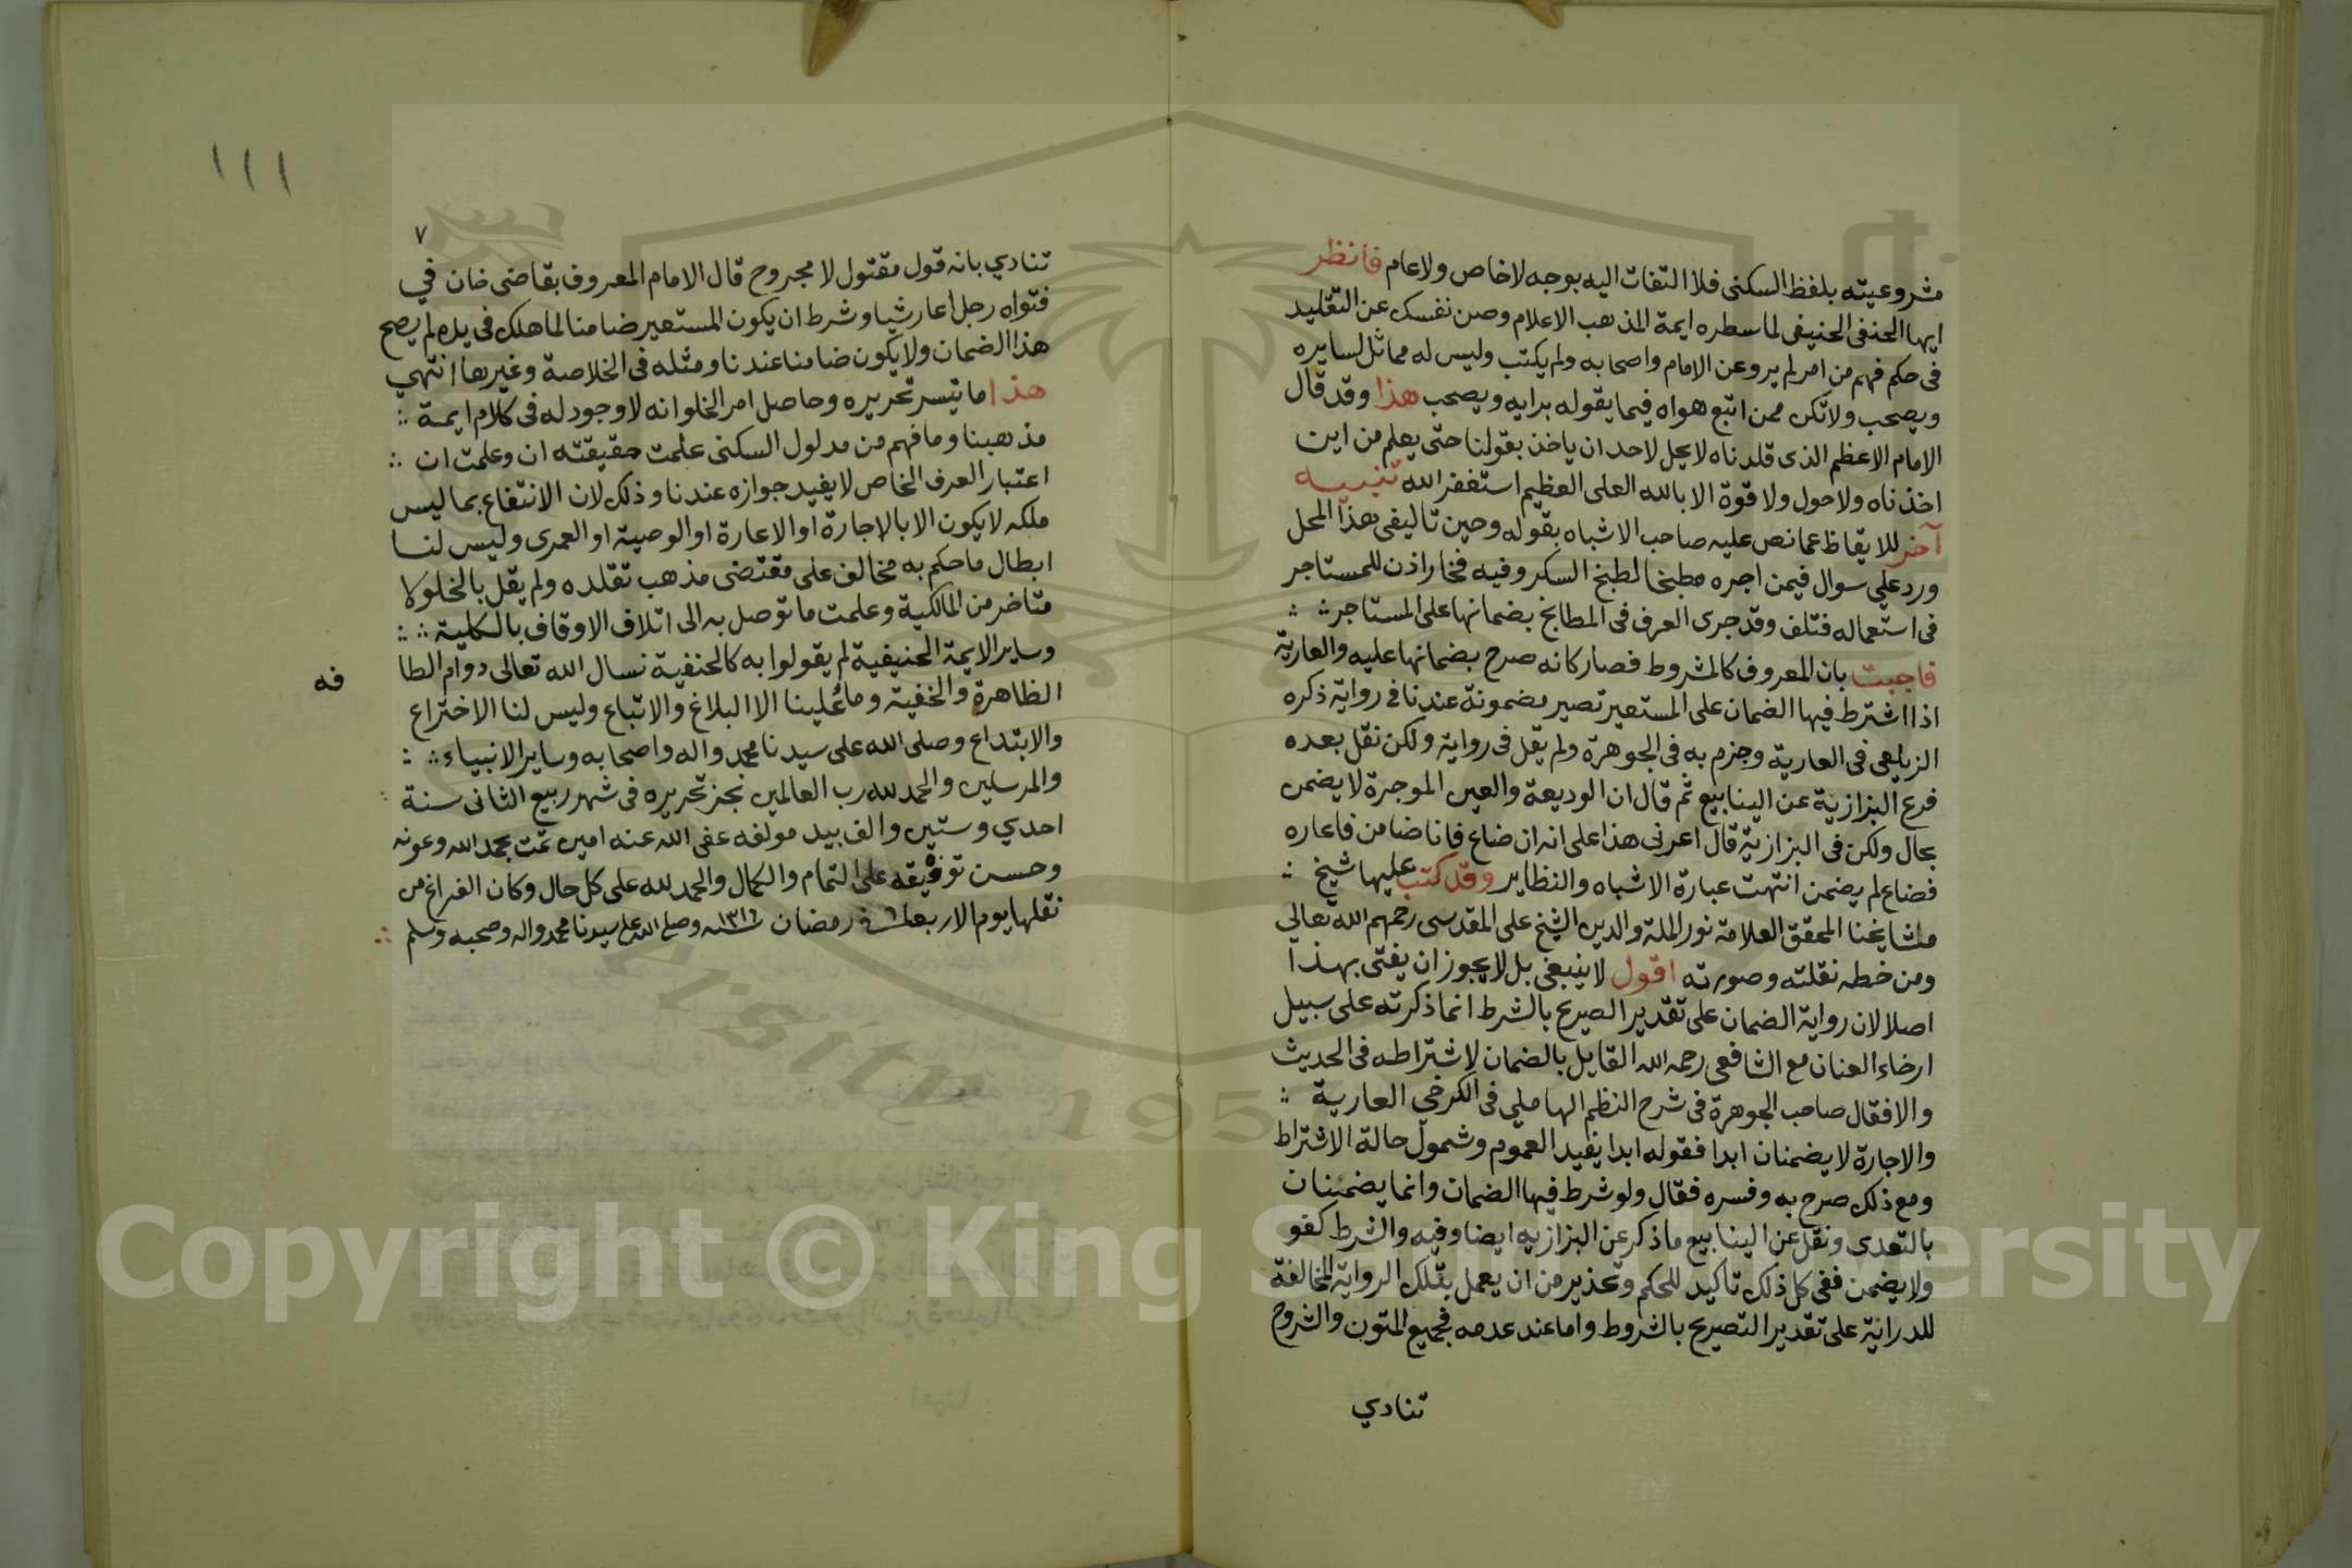 مشروعيته بلفظ السكنى فلا التفات اليه بوجه لا خاص ولا عام فانظر
ايها الحنفى الحنيفى لما سطره ايمة المذهب الاعلام وصن نفسك عن التقليد
فى حكم فهم من امر لم يرو عن الامام واصحابه ولم يكتب وليس له مماثل لسايره
ويصحب ولا تكن ممن اتبع هواه فيما يقوله برايه ويصحب هذا وقد قال
الامام الاعظم الذى قلدناه لا يحل لاحد ان ياخذ بقولنا حتى يعلم من اين
اخذناه ولا حول ولا قوة الا بالله العلى العظيم استغفر الله تنبيه
آخر للايقاظ عما نص عليه صاحب الاشباه بقوله وحين تاليفى هذا المحل
ورد علي سوال فيمن اجره مطبخا لطبخ السكر وفيه فخار اذن للمستاجر
فى استعماله فتلف وقد جرى العرف فى المطابخ بضمانها على المستاجر
فاجبت بان المعروف كالمشروط فصار كانه صرح بضمانها عليه والعارية
اذا اشترط فيها الضمان على المستعير تصير مضمونة عندنا فى رواية ذكره
الزيلعى فى العارية وجزم به فى الجوهرة ولم يقل فى رواية ولكن نقل بعده
فرع البزازية عن الينابيع ثم قال ان الوديعة والعين الموجرة لا يضمن
بحال ولكن فى البزازية قال اعرنى هذا على انه ان ضاع فانا ضامن فاعاره
فضاع لم يضمن انتهت عبارة الاشباه والنظاير وقد كتب عليها شيخ
مشايخنا المحقق العلامة نور الملة والدين الشيخ على المقدسى رحمهم الله تعالى
ومن خطه نقلته وصورته اقول لا ينبغى بل لا يجوز ان يفتى بهذا
اصلا لان رواية الضمان على تقدير الصريح بالشرط انما ذكرته على سبيل
ارخاء العنان مع الشافعى رحمه الله القايل بالضمان لاشتراطه فى الحديث
والا فقال صاحب الجوهرة فى شرح النظم الهاملي فى الكرخي العارية
والاجارة لا يضمنان ابدا فقوله ابدا يفيد العموم وشمول حالة الاشتراط
ومع ذلك صرح به وفسره فقال ولو شرط فيها الضمان وانما يضمنان
بالتعدى ونقل عن الينابيع ما ذكر عن البزازيه ايضا وفيه والشرط كفو
ولا يضمن ففى كل ذلك تاكيد للحكم وتحذير من ان يعمل بتلك الرواية المخالفة
للدراية على تقدير التصريح بالشروط واما عند عدمه فجميع المتون والشروح
تنادي
١١١
٧
تنادي بانه قول مقتول لا مجروح قال الامام المعروف بقاضى خان في
فتواه رجل اعار شيا وشرط ان يكون المستعير ضامنا لما هلك فى يده لم يصح
هذا الضمان ولا يكون ضامنا عندنا ومثله فى الخلاصة وغيرها انتهي
هذا ما تيسر تحريره وحاصل امر الخلو انه لا وجود له فى كلام ايمة
مذهبنا وما فهم من مدلول السكنى علمت حقيقته ان وعلمت ان
اعتبار العرف الخاص لا يفيد جوازه عندنا وذلك لان الانتفاع بما ليس
ملكه لا يكون الا بالاجارة او الاعارة او الوصية او العمرى وليس لنا
ابطال ما حكم به مخالف على مقتضى مذهب تقلده ولم يقل بالخلو كا
متاخر من المالكية وعلمت ما توصل به الى اتلاف الاوقاف بالكلية
وساير الايمة الحنيفية لم يقولوا به كالحنفية نسال الله تعالى دوام الطا
فه
الظاهرة والخفية وما علينا الا البلاغ والاتباع وليس لنا الاختراع
والابتداع وصلى الله على سيدنا محمد واله واصحابه وساير الانبياء
والمرسلين والحمد لله رب العالمين نجز تحريره فى شهر ربيع الثانى سنة
احدي وستين والف بيد مولفه عفى الله عنه امين تمت بحمد الله وعونه
وحسن توفيقه على التمام والكمال والحمد لله على كل حال وكان الفراغ من
نقلها يوم الاربعا رمضان سنه ١٣١٦ وصلى الله على سيدنا محمد واله وصحبه وسلم
Copyright © King University